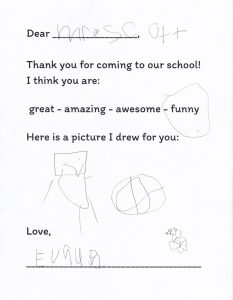 Dear mrasc ott,
Thank you for coming to our school!
I think you are:
great - amazing - awesome - funny
Here is a picture I drew for you:
Love,